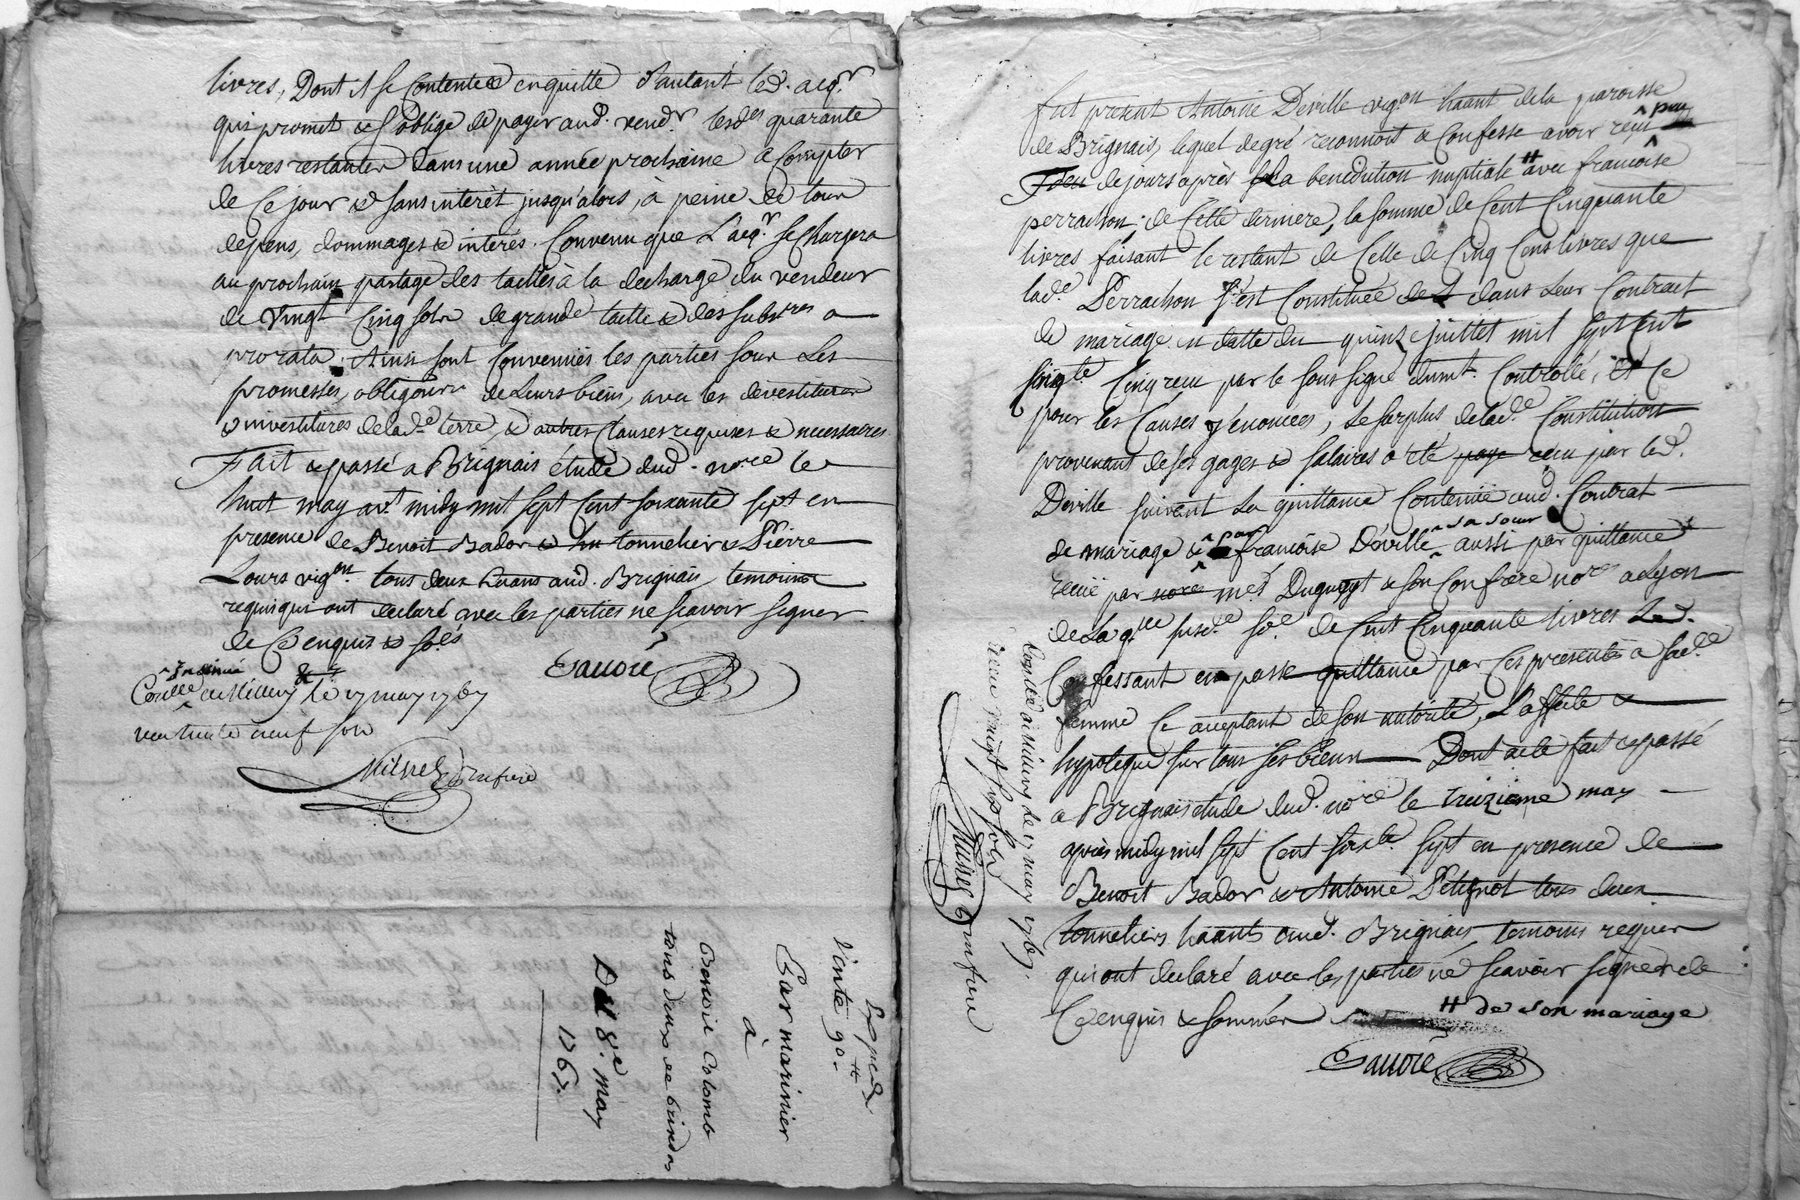 livres, Dont il se Contente & en quitte d'autant led. acq.r
qui promet & s'oblige de payer aud. vend.r lesd.es quarante
livres restantes dans une année prochaine a Compter
de Ce jour & sans interèt jusqu'alors, à peine de tous
depens, dommages & interès. Convenu que L'acq.r se Chargera
au prochain partage des tailles à la decharge du vendeur
de Vingt Cinq sols de grande taille & des subs.res a
prorata. Ainsi sont Convenües les parties sous Les
promesses, obligõns de Leurs biens, avec les devestitures
& investitures de lad.e terre, & autres Clauses requises & necessaires
Fait & passé a Brignais étude dud. no.re le
huit may av.t midy mil sept Cent soixante sept en
presence de Benoit Bador tonnelier & Pierre
Lours vig.on tous deux hãans aud. Brignais, temoins
requis qui ont declaré avec les parties ne scavoir signer
de Ce enquis & so.és
Insinué
Con.llé & a Millery le 17 may 1767
trente neuf sols
Expedi
Vente 90.
Gas marinier
à
Benoit Colomb
tous deux de brindas
Du 8.e may
1767.
fut present Antoine Deville vigon hãant de la paroisse
de Brignais, lequel de gré reconnoit & Confesse avoir reçû peu
de jours après la benediction nuptiale # avec francoise
perrachon, de Cette derniere, la somme de Cent Cinquante
livres faisant le restant de Celle de Cinq Cens livres que
lad.e Perrachon s'est Constituée dans Leur Contract
de mariage en datte du quinze juillet mil sept Cent
soix.te Cinq recu par le sous signé dumt. Controllé, et Ce
pour les Causes y enoncées, Le surplus de lad.e Constitution
provenant de ses gages & salaires a eté paye recu par led.
Deville suivant La quittance Contenüe aud. Contrat
de mariage & par francoise Deville sa sœur aussi par quittance
recüe par mes Duguyt & son Confrere no.res a Lyon
de La q.lle susd.e so.e de Cent Cinquante livres Led.
Confessant en passe quittance par Ces presentes a sad.e
femme Ce acceptant de son autorité, L'affecte &
hypoteque sur tous ses biens Dont acte fait & passé
a Brignais étude dud. no.re le treizieme may
après midy mil sept Cent soix.te sept en presence de
Benoit Bador & Antoine Petignot tous deux
tonneliers hãants aud. Brignais, temoins requis
qui ont declaré avec les parties ne scavoir signer de
Ce enquis & sommés # de son mariage
Con.llé a Millery le 17 may 1767.
recu vingt six sols